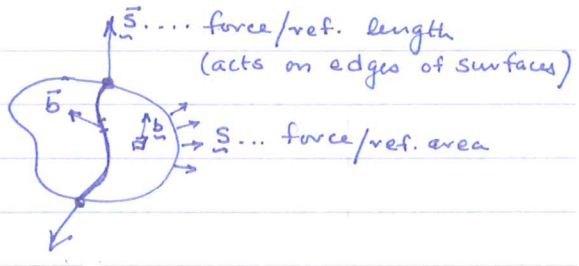 s⃗.... force/ref. length
(acts on edges of surfaces)
b⃗
b
s... force/ref. area